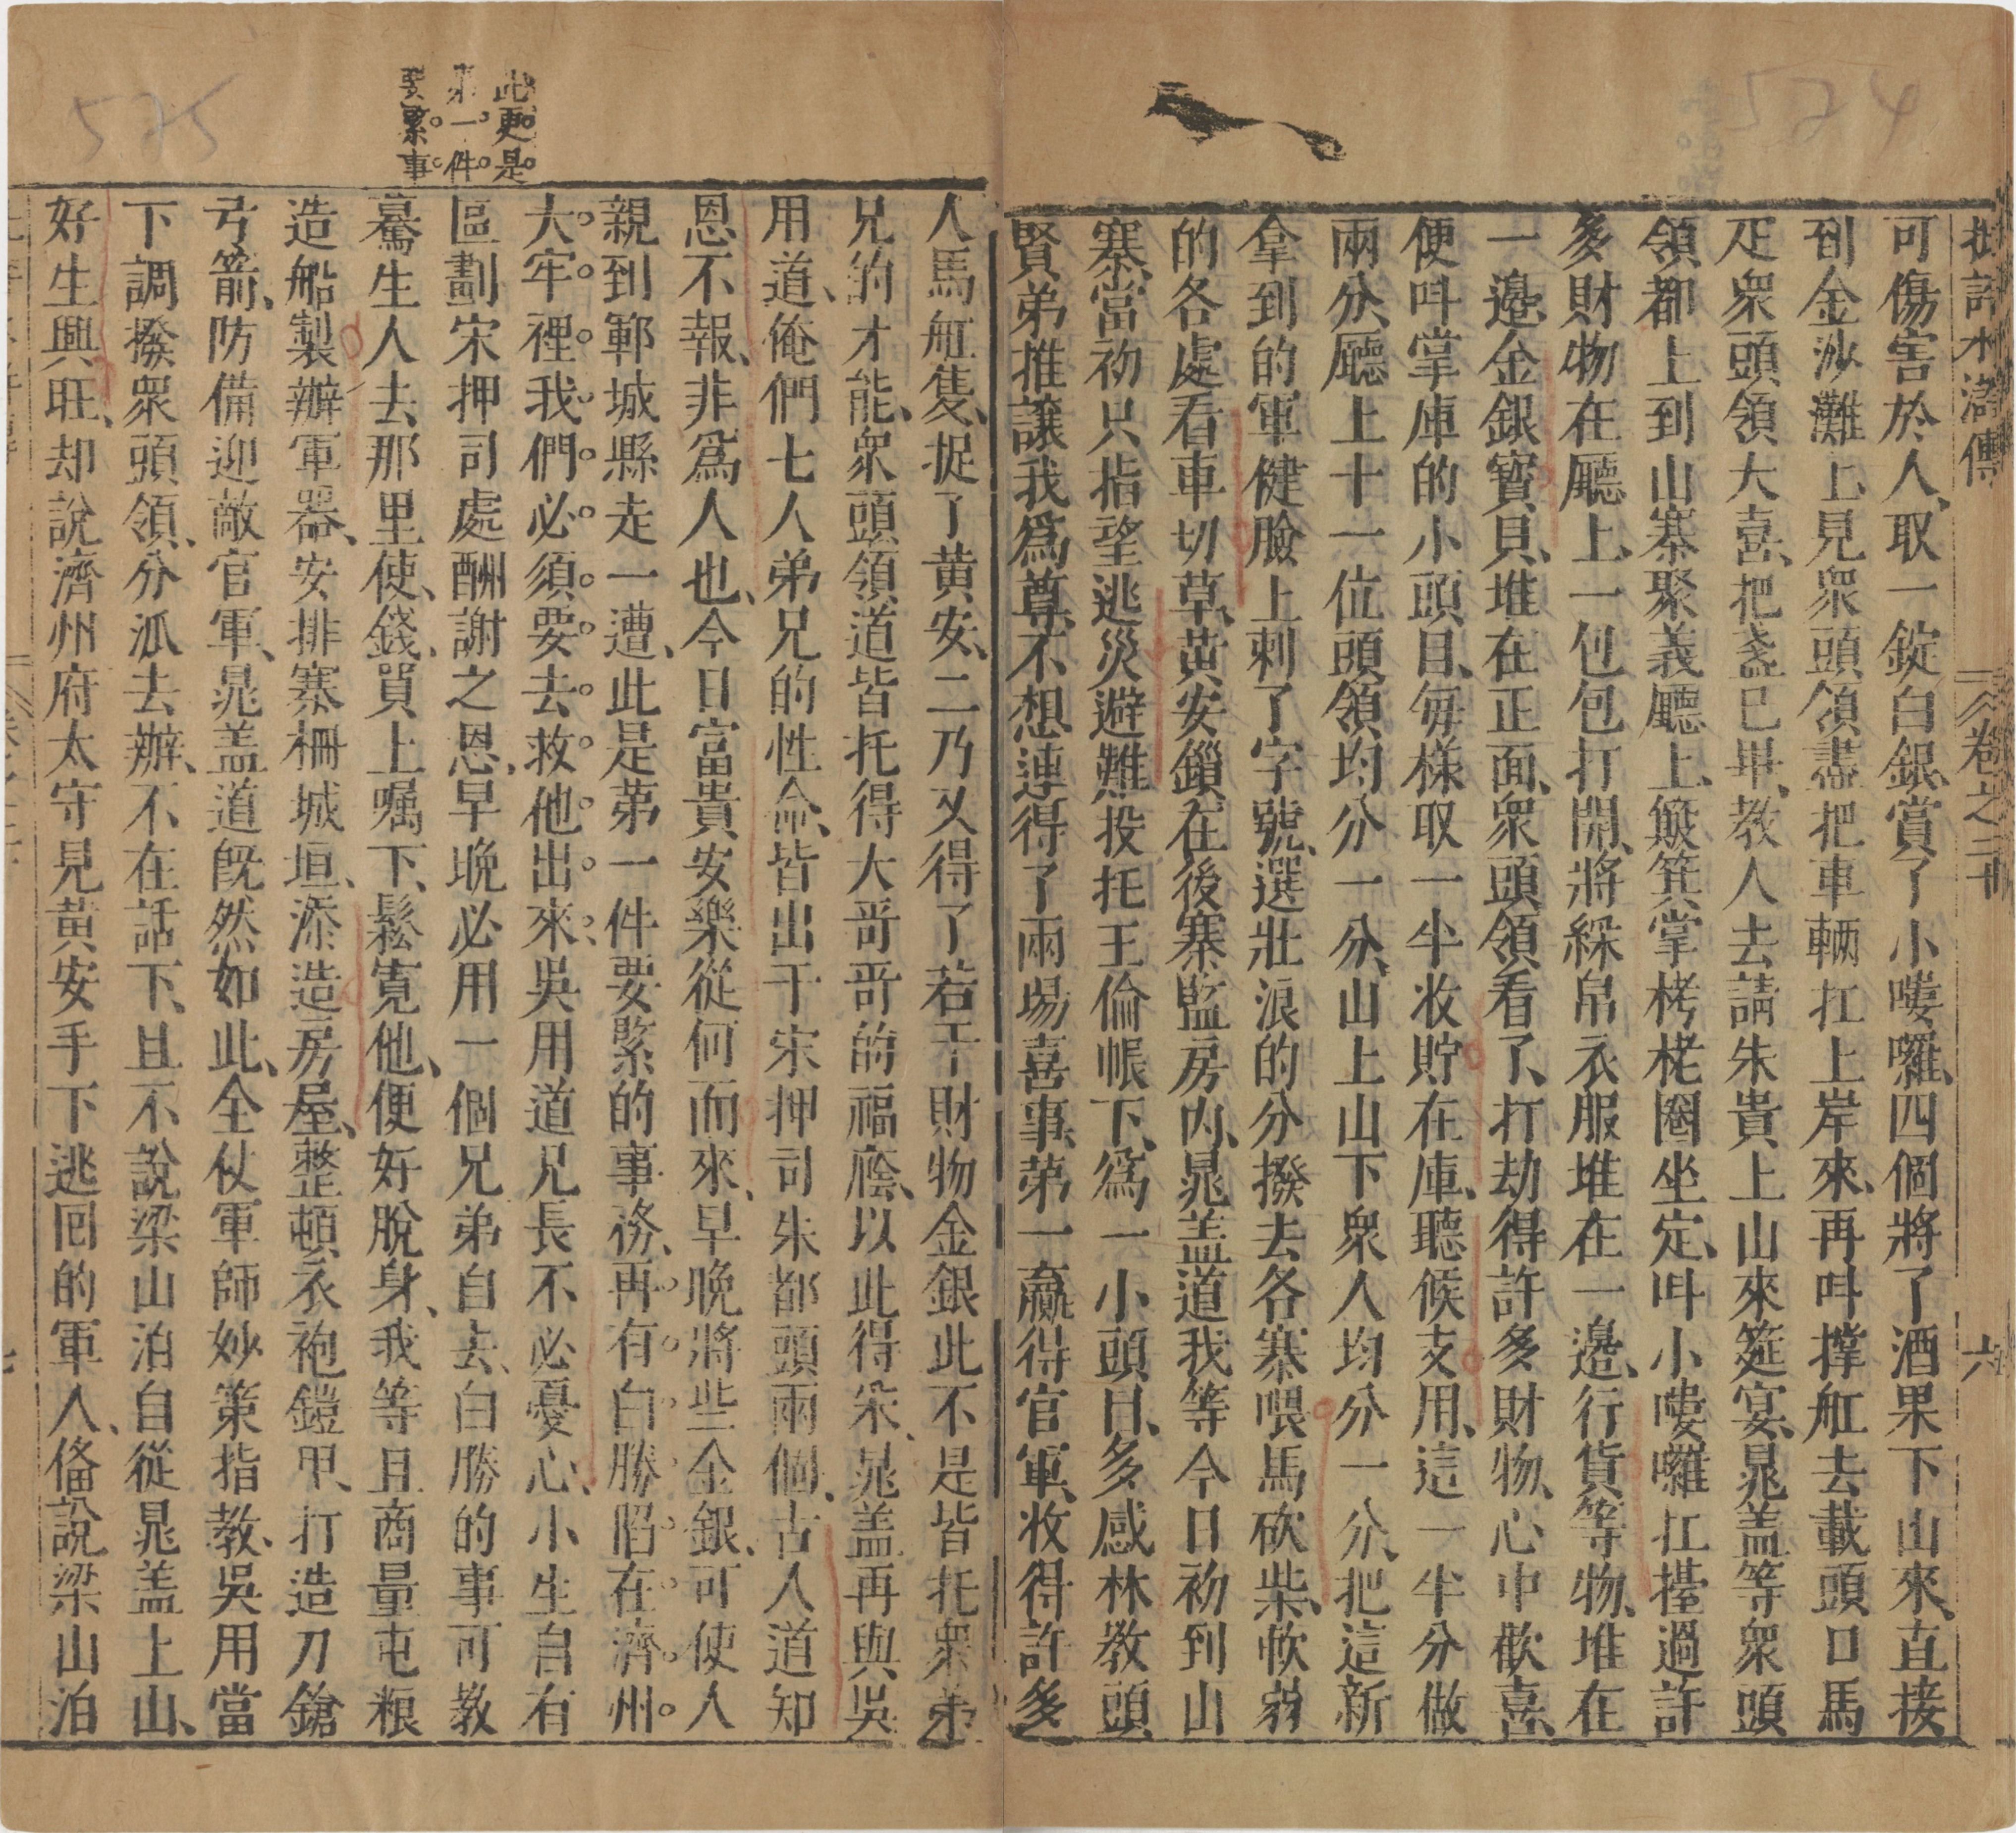 524
批評水滸傳
卷之二十
六
可傷害於人、取一錠白銀、賞了小嘍囉、四個將了酒果下山來、直接
到金沙灘上、見眾頭領盡把車輛扛上岸來、再叫撑舡去載頭口馬
疋眾頭領大喜、把盞已畢、教人去請朱貴上山來筵宴、晁盖等眾頭
領都上到山寨聚義廳上、簸箕掌栲栳圈坐定、叫小嘍囉扛擡過許
多財物在廳上、一包包打開、將綵帛衣服堆在一邊、行貨等物、堆在
一邊、金銀寳貝、堆在正面、眾頭領看了、打劫得許多財物、心中歡喜、
便叫掌庫的小頭目、每樣取一半收貯在庫、聽候支用、這一半分做
兩分、廳上十一位頭領均分一分、山上山下眾人均分一分、把這新
拿到的軍健臉上剌了字號、選壯浪的分撥去各寨喂馬砍柴、軟弱
的各處看車切草、黄安鎻在後寨監房内、晁盖道我等今日初到山
寨、當初只指望逃災避難、投托王倫帳下、爲一小頭目、多感林教頭
賢弟推讓我爲尊、不想連得了兩場喜事、第一贏得官軍、收得許多
575
此更是
第一件
要緊事
人馬舡隻、捉了黄安、二乃又得了若干財物金銀此不是皆托衆弟
兄的才能、眾頭領道皆托得大哥哥的福廕、以此得采、晁盖再與吳
用道、俺們七人弟兄的性命、皆出于宋押司朱都頭兩個、古人道知
恩不報、非爲人也、今日富貴安樂從何而來、早晚將些金銀、可使人
親到鄆城縣走一遭、此是第一件要緊的事務、再有白勝陷在濟州
大牢裡我們必須要去救他出來、吳用道兄長不必憂心、小生自有
區劃宋押司處酬謝之恩、早晚必用一個兄弟自去、白勝的事可教
驀生人去那里使、錢、買上囑下、鬆寛他、便好脫身、我等且商量屯粮
造船製辦軍器、安排寨柵城垣、添造房屋、整頓衣袍鎧甲、打造刀鎗
弓箭、防備迎敵官軍、晁盖道旣然如此、全仗軍師妙策指教、吳用當
下調撥眾頭領、分派去辦、不在話下、且不說梁山泊自從晁盖上山、
好生興旺、却說濟州府太守見黄安手下逃囘的軍人、俻說梁山泊